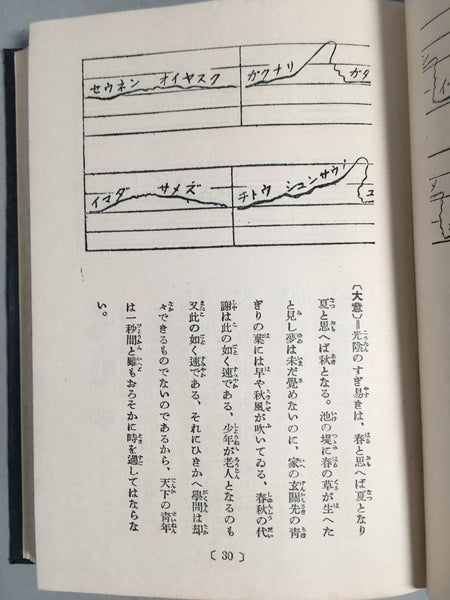 セウネン オイヤスク
ガクナリ
ガタ
イマダ サメズ
チトウ シュンサウノ
ユ
〔大意〕=光陰のすぎ易きは、春と思へば夏となり
夏と思へば秋となる。池の堤に春の草が生へた
と見し夢は未だ覚めないのに、家の玄關先の靑
ぎりの葉には早や秋風が吹いてゐる、春秋の代
謝は此の如く速である、少年が老人となるのも
又此の如く速である、それにひきかへ學問は却
々できるものでないのであるから、天下の靑年
は一秒間と雖もおろそかに時を過してはならな
い。
〔 30 〕